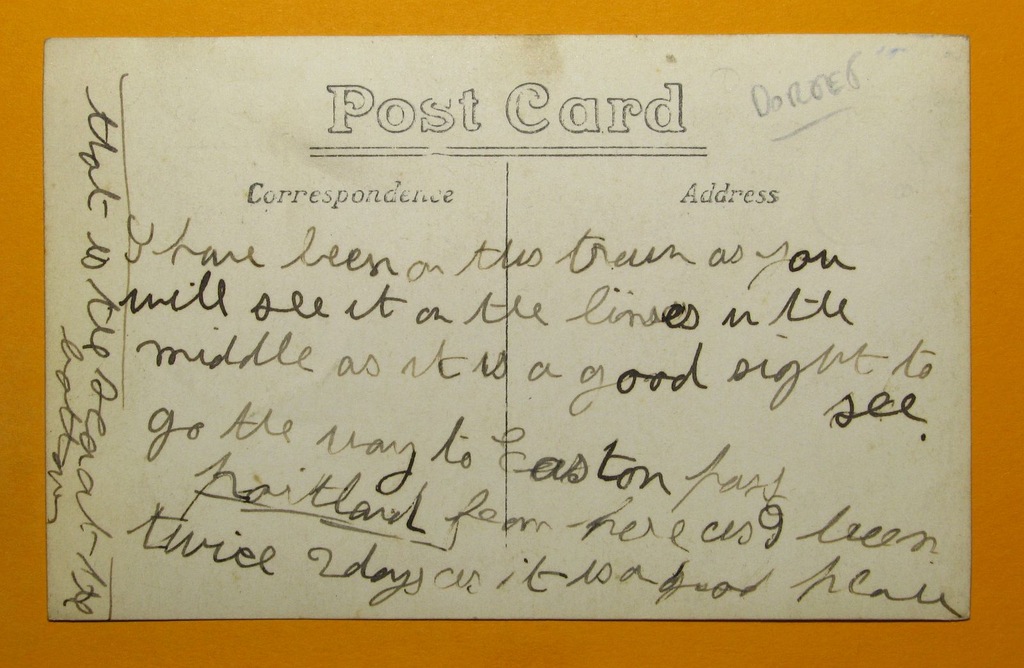 Post Card
DORSET
Correspondence
Address
I have been on this train as you
will see it on the lines in the
middle as it is a good sight to
see.
go the way to Easton pass
portland from here as I been
twice 2 days as it is a good place
that is the at the
bottom